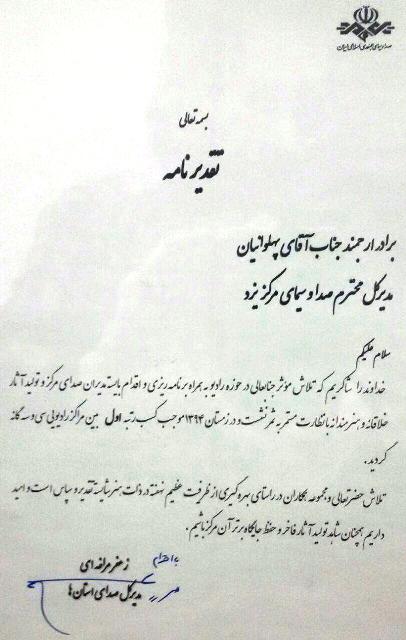 صدا و سیمای جمهوری اسلامی ایران
بسمه تعالی
تقدیرنامه
برادر ارجمند جناب آقای پهلوانیان
مدیرکل محترم صدا و سیمای مرکز یزد
سلام علیکم
خداوند را شاکریم که تلاش مؤثر جنابعالی در حوزه رادیو به همراه برنامه ریزی و اقدام بایسته مدیران صدای مرکز و تولید آثار
خلاقانه و هنرمندانه با نظارت مستمر به ثمر نشست و در زمستان ۱۳۹۴ موجب کسب رتبه اول بین مراکز رادیویی سی و سه گانه
گردید.
تلاش حضرتعالی و مجموعه همکاران در راستای بهره گیری از ظرفیت عظیم نهفته در ذات هنر شایسته تقدیر و سپاس است و امید
داریم همچنان شاهد تولید آثار فاخر و حفظ جایگاه برتر آن مرکز باشیم.
با احترام
زعفر مراغه ای
مدیرکل صدای استان ها